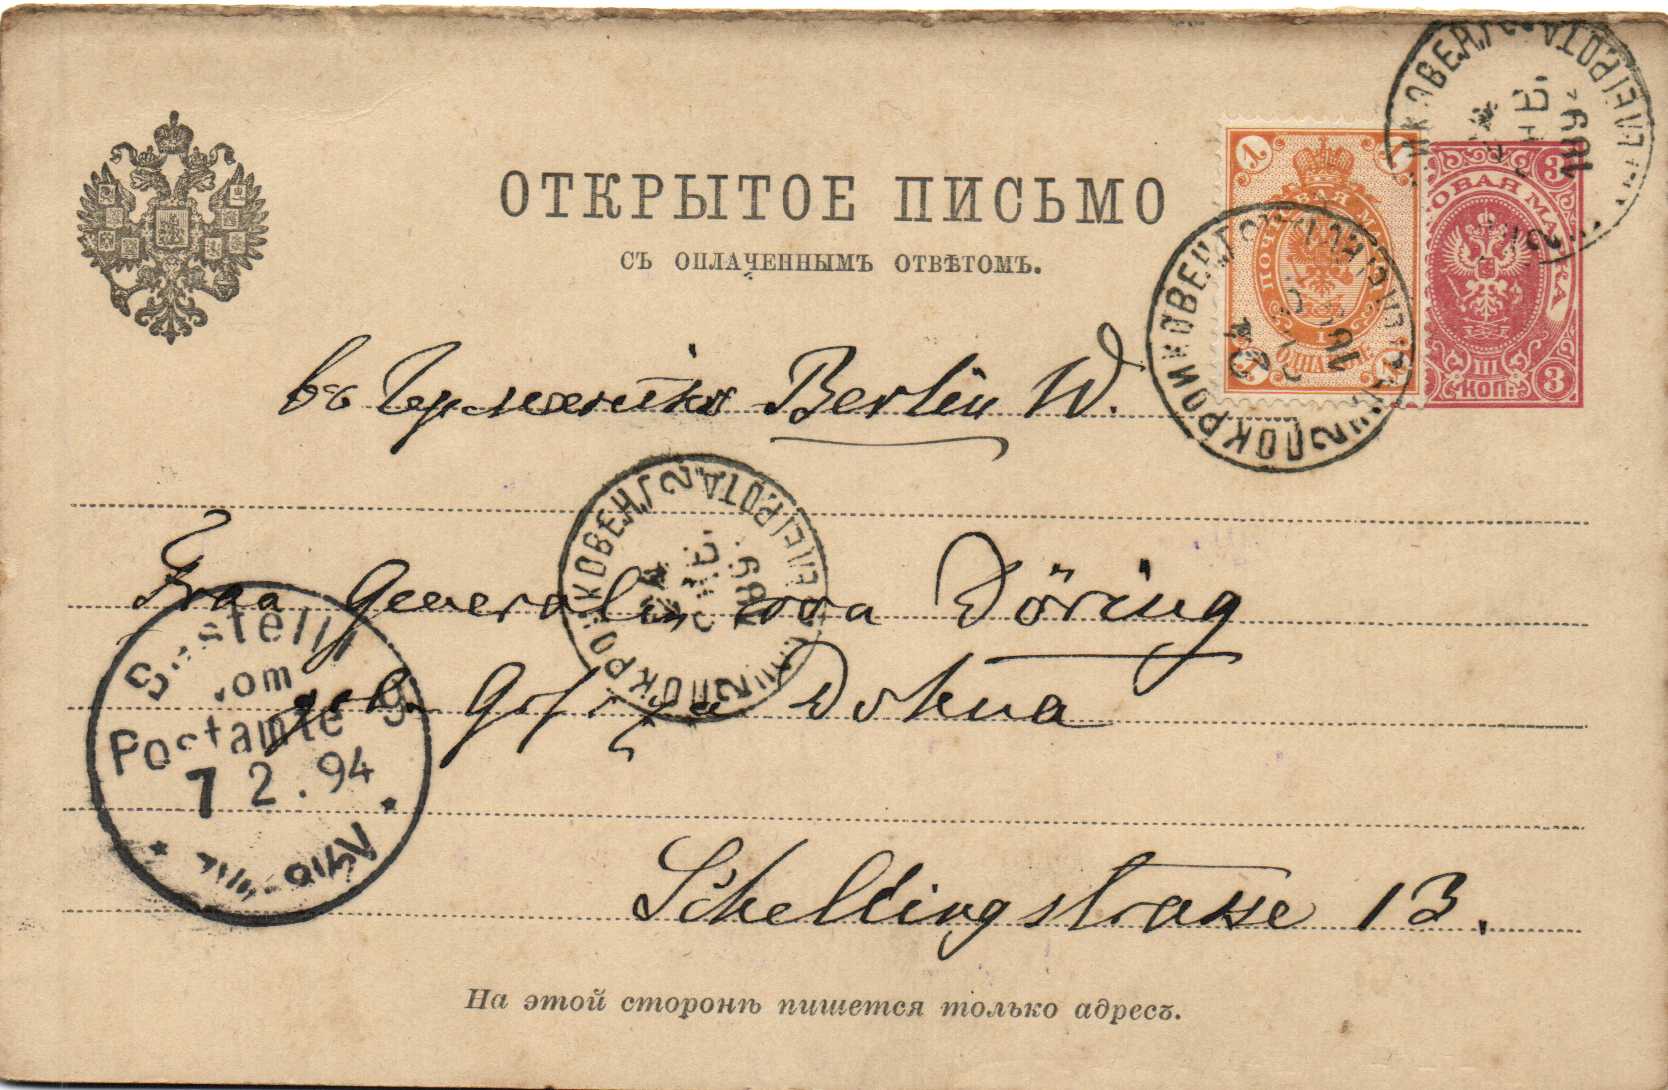 ОТКРЫТОЕ ПИСЬМО
СЪ ОПЛАЧЕННЫМЪ ОТВѢТОМЪ.
1
3
ПОЧТОВАЯ МАРКА
ОДНА КОП.
III КОП. 3
въ Германiю Berlin W.
ПОКРОЙ КОВЕН. Г.
Frau Generalin von Döring
geb. Grf. zu Dohna
Bestellt
vom
Postamte 9
7 2. 94
Schellingstrasse 13.
На этой сторонѣ пишется только адресъ.